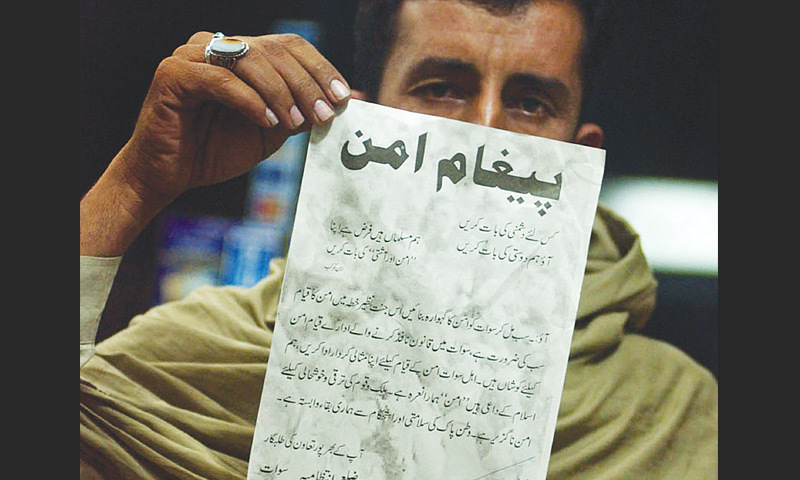 پیغام امن
کس لئے دشمنی کی بات کریں ہم مسلماں ہیں فرض ہے اپنا
آؤ ہم دوستی کی بات کریں "امن اور آشتی" کی بات کریں
آؤ! سب مل کر سوات کو امن کا گہوارہ بنائیں اس جنت نظیر خطہ میں امن کا قیام
سب کی ضرورت ہے، سوات میں قانون نافذ کرنے والے ادارے قیام امن
کیلئے کوشاں ہیں۔ اہل سوات امن کے قیام کیلئے اپنا مثالی کردار ادا کریں، ہم
اسلام کے داعی ہیں "امن" ہمارا نعرہ ہے۔ ملک و قوم کی ترقی و خوشحالی کیلئے
امن ناگزیر ہے۔ وطن پاک کی سلامتی اور استحکام سے ہماری بقاء وابستہ ہے۔
آپ کے بھرپور تعاون کی طلبگار
ضلعی انتظامیہ سوات